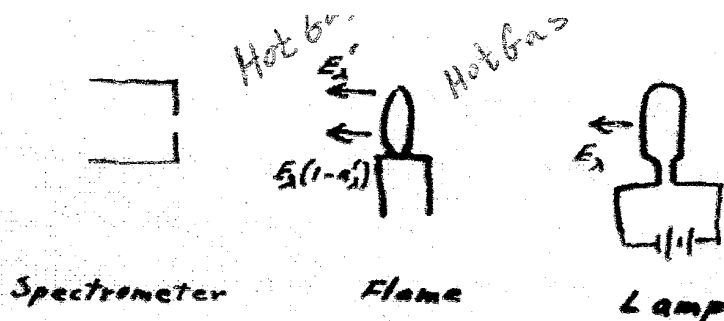 Hot Gas
Hot Gas
Eλ'
Eλ(1-αλ')
Eλ
Spectrometer
Flame
Lamp